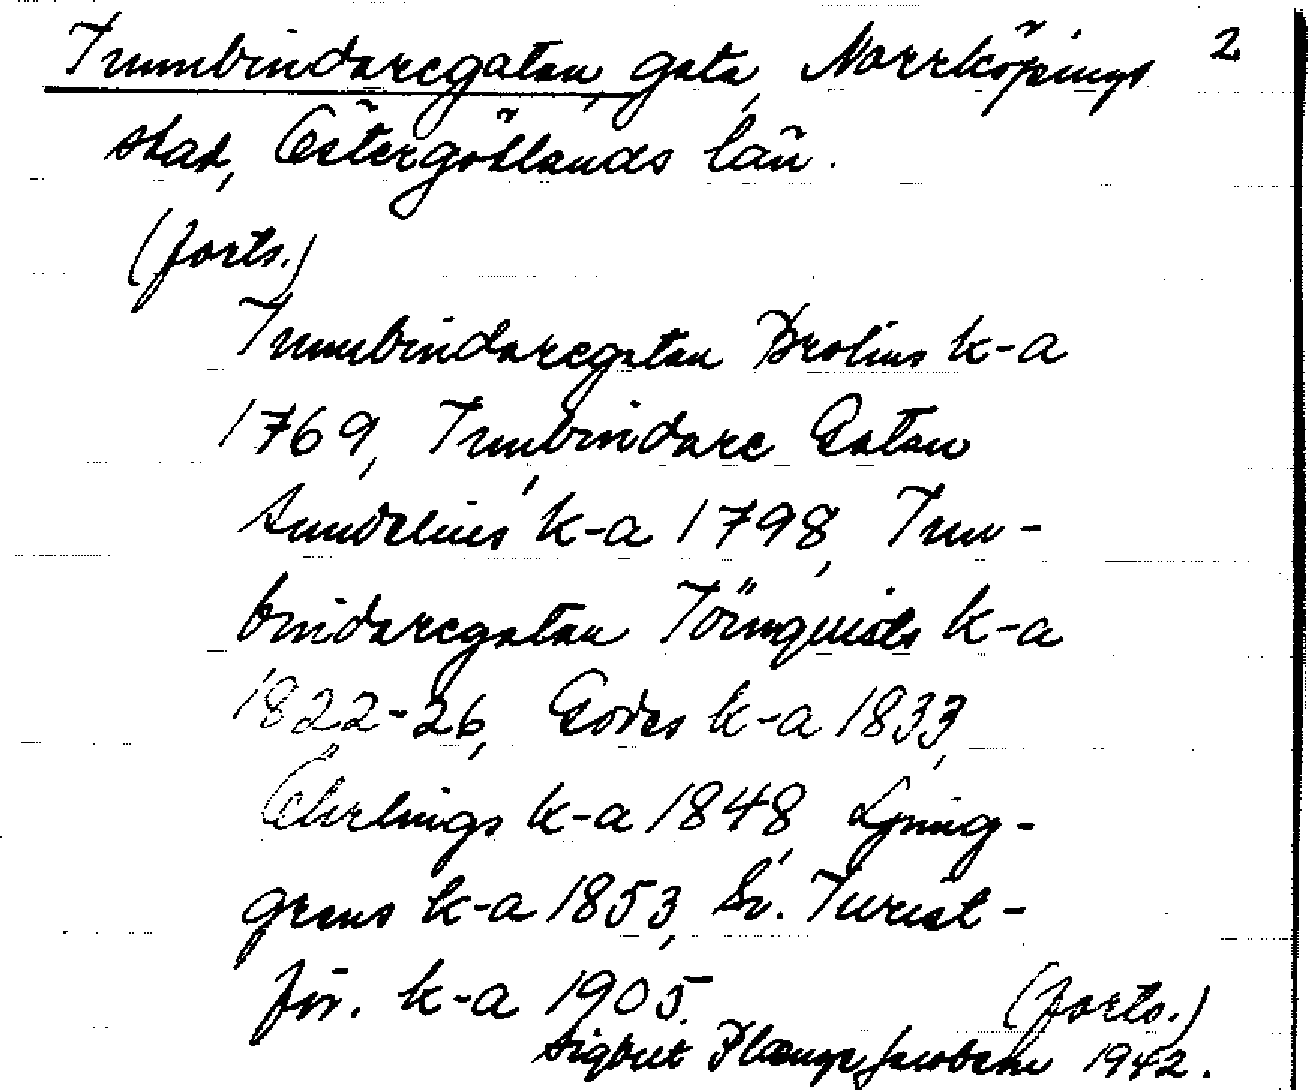 Tunnbindaregatan, gata, Norrköpings 2
stad, Östergötlands län.
(forts.)
Tunnbindaregatan Brolins k-a
1769, Tunbindare Gatan
Sundelius k-a 1798, Tun-
bindaregatan Törnquists k-a
1822-26, Godes k-a 1833,
Öhrlings k-a 1848, Ljung-
grens k-a 1853, Sv. Turist-
för. k-a 1905. (forts.)
Sigbrit Plænge Jacobson 1942.